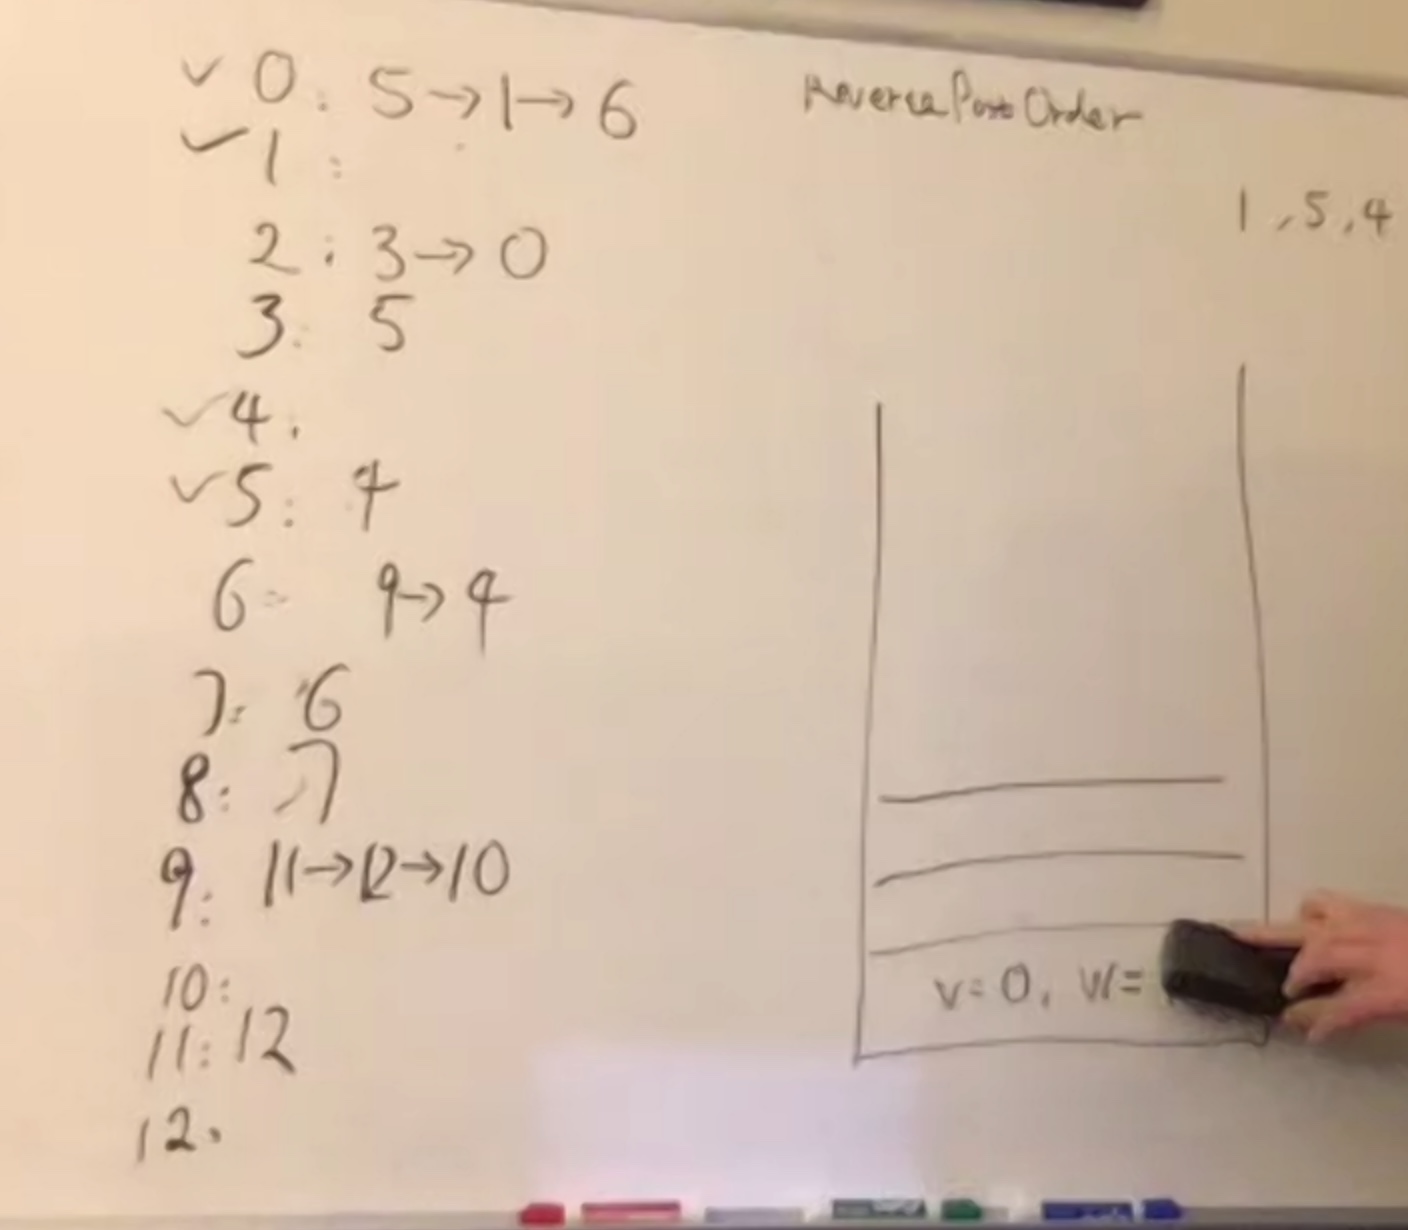 ✓ 0: 5→1→6
✓ 1:
2: 3→0
3: 5
✓ 4:
✓ 5: 4
6: 9→4
7: 6
8: 7
9: 11→12→10
10:
11: 12
12.
Reverse Post Order
1, 5, 4
v=0, w=